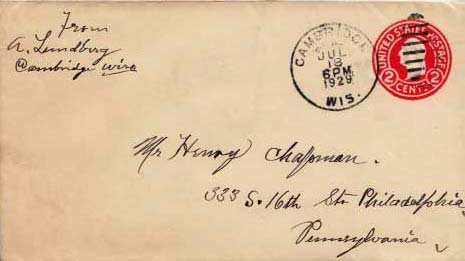 From
A. Lundberg
Cambridge Wisc
CAMBRIDGE
JUL
18
6 PM
1929
WIS.
UNITED STATES POSTAGE
2 CENTS 2
Mr Henry Chapman.
333 S. 16th Str Philadelphia
Pennsylvania